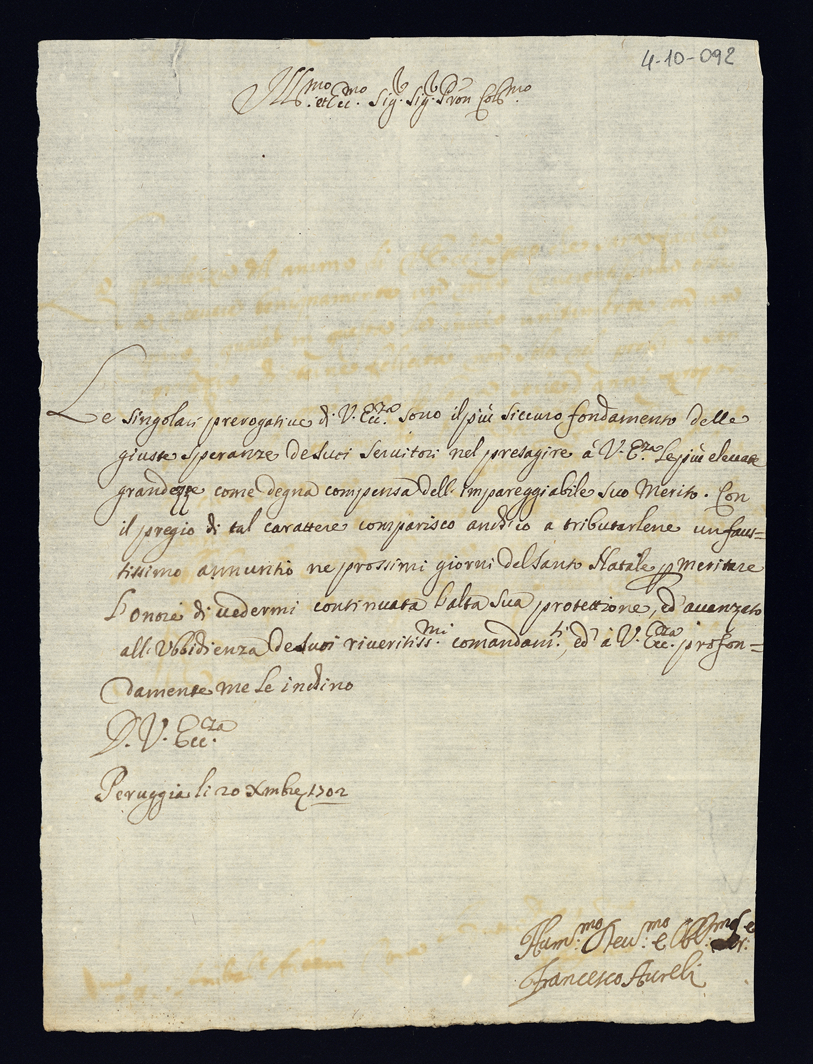 4-10-092
Ill.mo et Ecc.mo Sig.r Sig.r Pron Col.mo
Le singolari prerogative di V. Ecc.za sono il più siccuro fondamento delle
giuste speranze de suoi servitori nel presagire à V. E.za le più elevate
grandezze come degna compensa dell'impareggiabile suo Merito. Con
il pregio di tal carattere comparisco anch'io a tributarlene un faus=
tissimo annuntio ne prossimi giorni del Santo Natale p meritare
l'onore di vedermi continuata l'alta Sua protettione, ed'avanzato
all'Vbbidienza de suoi riveritiss.mi comandam.ti, ed'à V. Ecc.za profon=
damente me le inchino
D. V. Ecc.za
Peruggia li 20 Xmbre 1702
Hum.mo Dev.mo e Obl.mo Ser.e
Francesco Aureli